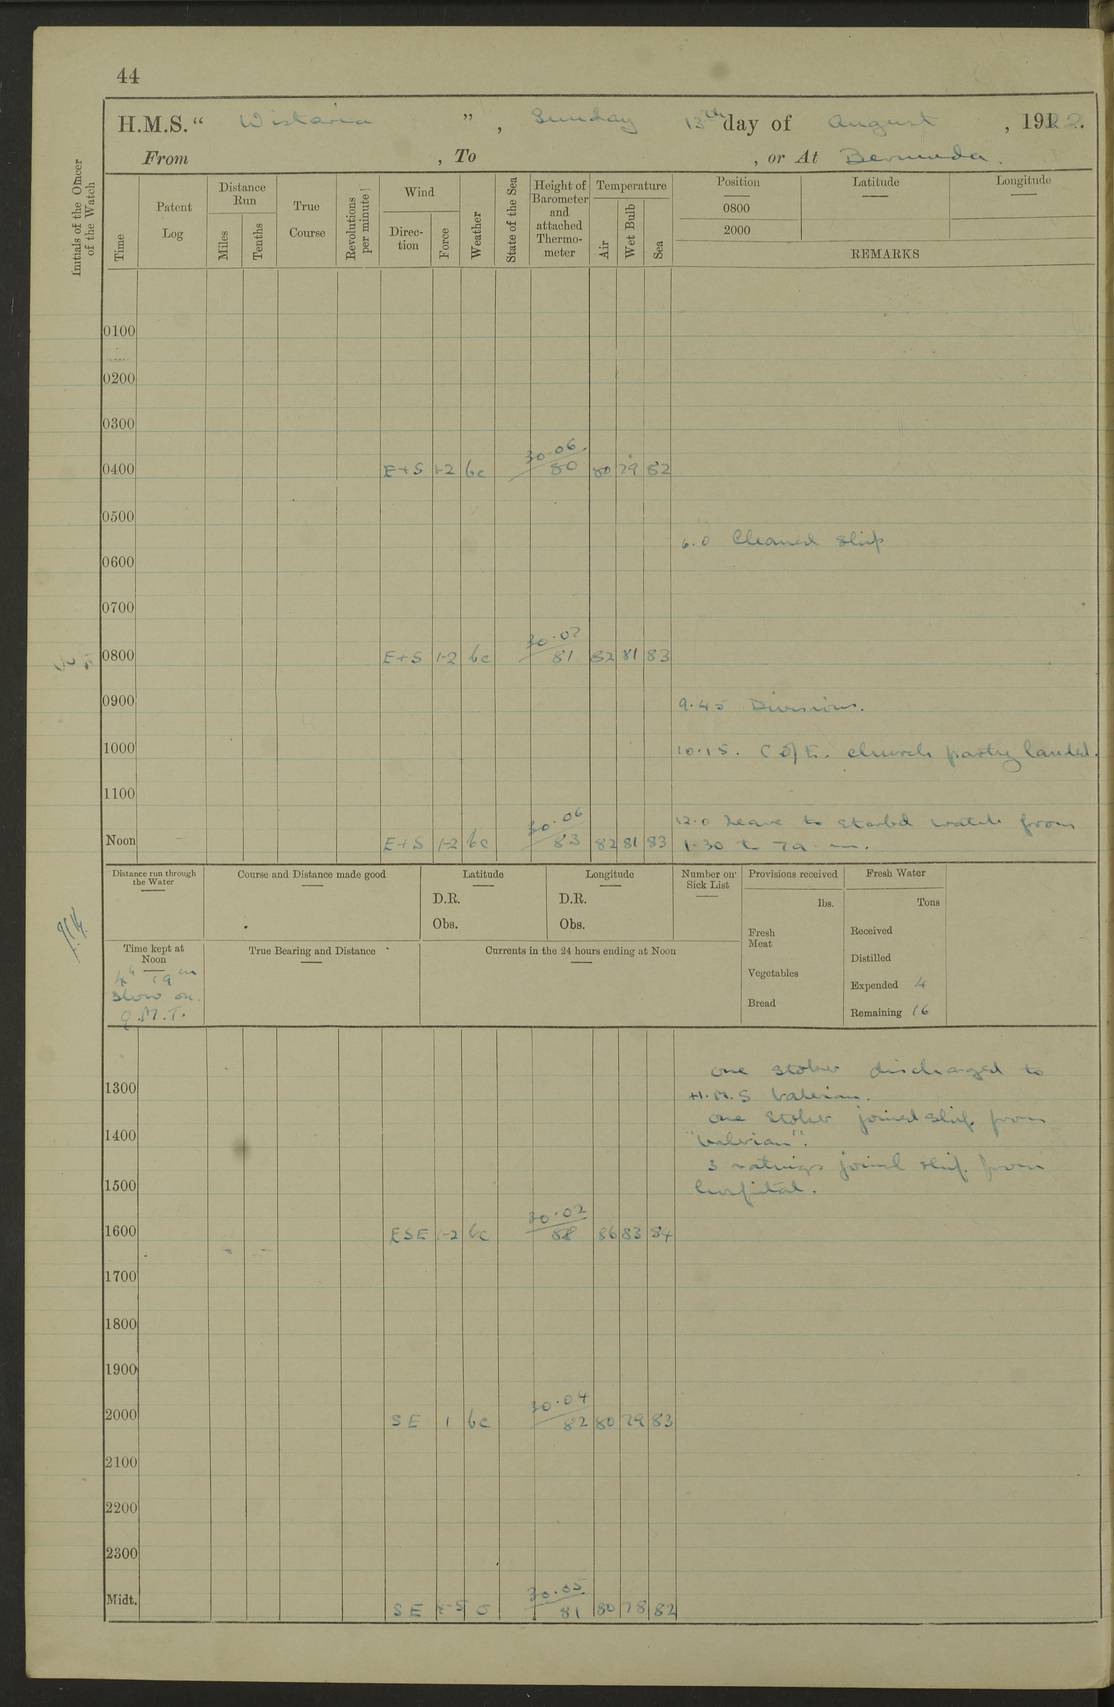 44
H.M.S. “ Wistaria ” , Sunday 13th day of August , 1922.
From , To , or At Bermuda.
Initials of the Officer of the Watch
Time
Patent Log
Distance Run
Miles
Tenths
True Course
Revolutions per minute
Wind
Direction
Force
Weather
State of the Sea
Height of Barometer and attached Thermometer
Temperature
Air
Wet Bulb
Sea
Position
Latitude
Longitude
0800
2000
REMARKS
0100
0200
0300
0400 E+S 1-2 bc 30.06 80 80 79 82
0500
6.0 Cleaned Ship
0600
0700
0800 E+S 1-2 bc 30.07 81 82 81 83
0900 9.45 Divisions.
1000 10.15. C of E. church party landed.
1100
12.0 Leave to Starbd watch from
Noon E+S 1-2 bc 30.06 83 82 81 83 1.30 to 7 a.m.
Distance run through the Water
Course and Distance made good
Latitude
D.R.
Obs.
Longitude
D.R.
Obs.
Number on Sick List
Provisions received
lbs.
Fresh Meat
Vegetables
Bread
Fresh Water
Tons
Received
Distilled
Expended 4
Remaining 16
Time kept at Noon
4h 19m
slow on
G.M.T.
True Bearing and Distance
Currents in the 24 hours ending at Noon
one stoker discharged to
1300 H.M.S Valerian.
one Stoker joined ship from
1400 "Valerian".
3 ratings joined ship from
1500 hospital.
1600 ESE 1-2 bc 30.02 88 86 83 84
1700
1800
1900
2000 SE 1 bc 30.04 82 80 79 83
2100
2200
2300
Midt. SE 4-5 c 30.05 81 80 78 82